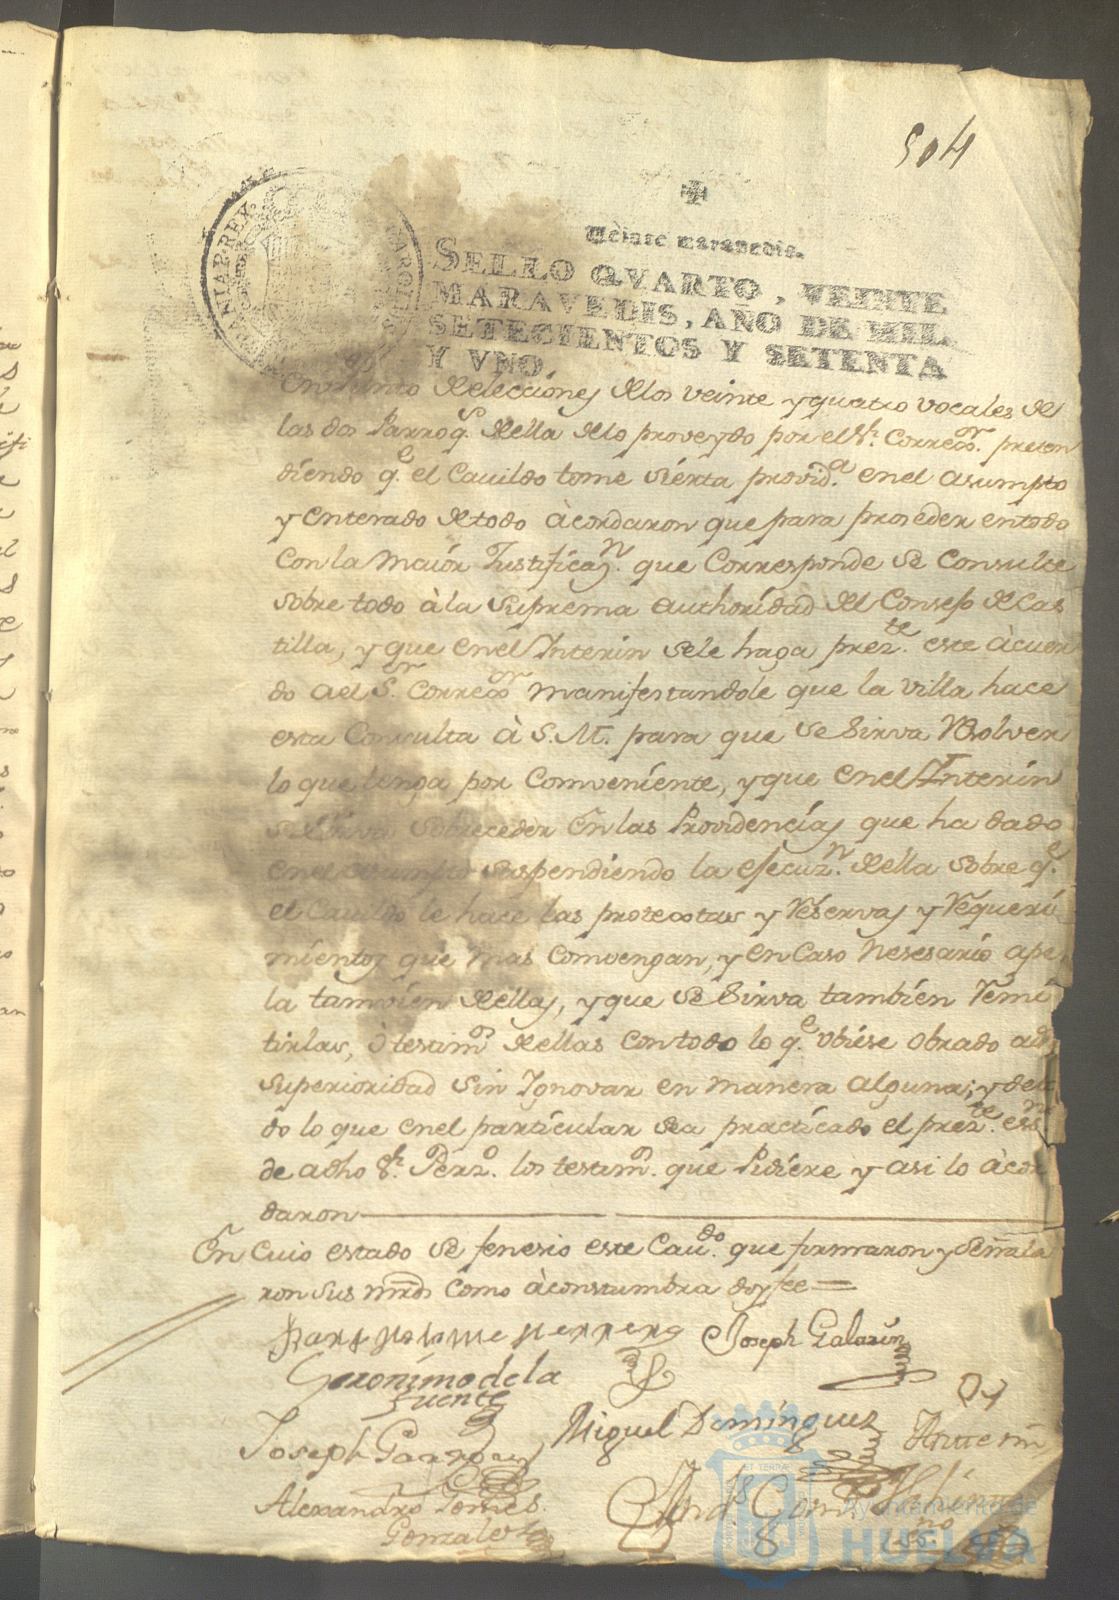 504
Veinte maravedis.
SELLO QVARTO, VEINTE
MARAVEDIS, AÑO DE MIL
SETECIENTOS Y SETENTA
Y VNO.
En Punto de elecciones de los veinte y quatro vocales de
las dos Parroq.s de ella de lo proveydo por el S.r Correg.or preten
diendo q.e el Cauildo tome sierta provid.a en el asumpto
y enterado de todo àcordaron que para proseder en todo
con la maior Justificaz.n que Corresponde se Consulte
sobre todo à la Suprema authoridad del Consejo de Cas
tilla, y que en el Interin se le haga prez.te este àcuer
do a el S.r Correg.or manifestandole que la Villa hace
esta Consulta à S.M. para que se sirva Resolver
lo que tenga por Comveniente, y que en el Interin
se sirva sobreceder en las Providencias que ha dado
en el asumpto suspendiendo la ejecuz.n de ella sobre q.e
el Cauildo le hace las protextas y Réservas y Requeri
mientos que mas Comvengan, y en Caso nesesario ape
la tamvien de ellas, y que se sirva tambien Remi
tirlas, ò testim.o de ellas con todo lo q.e vbiese obrado a d.ha
superioridad sin Ignovar en manera alguna; y de to
do lo que en el particular sea practicado el prez.te ess.no
de a dho S.r Perz.o los testim.s que Pidiere y asi lo àcor
daron
En cuio estado se fenesio este Cau.do que firmaron y señala
ron sus mrds como àconstumbra doy fee =
Bartholome Herrero Joseph Galarin
Geronimo de la
fuente
Joseph Miguel Dominguez Ante mi
Alexandro Gomes
Gonzales
Ayuntamiento de
HUELVA